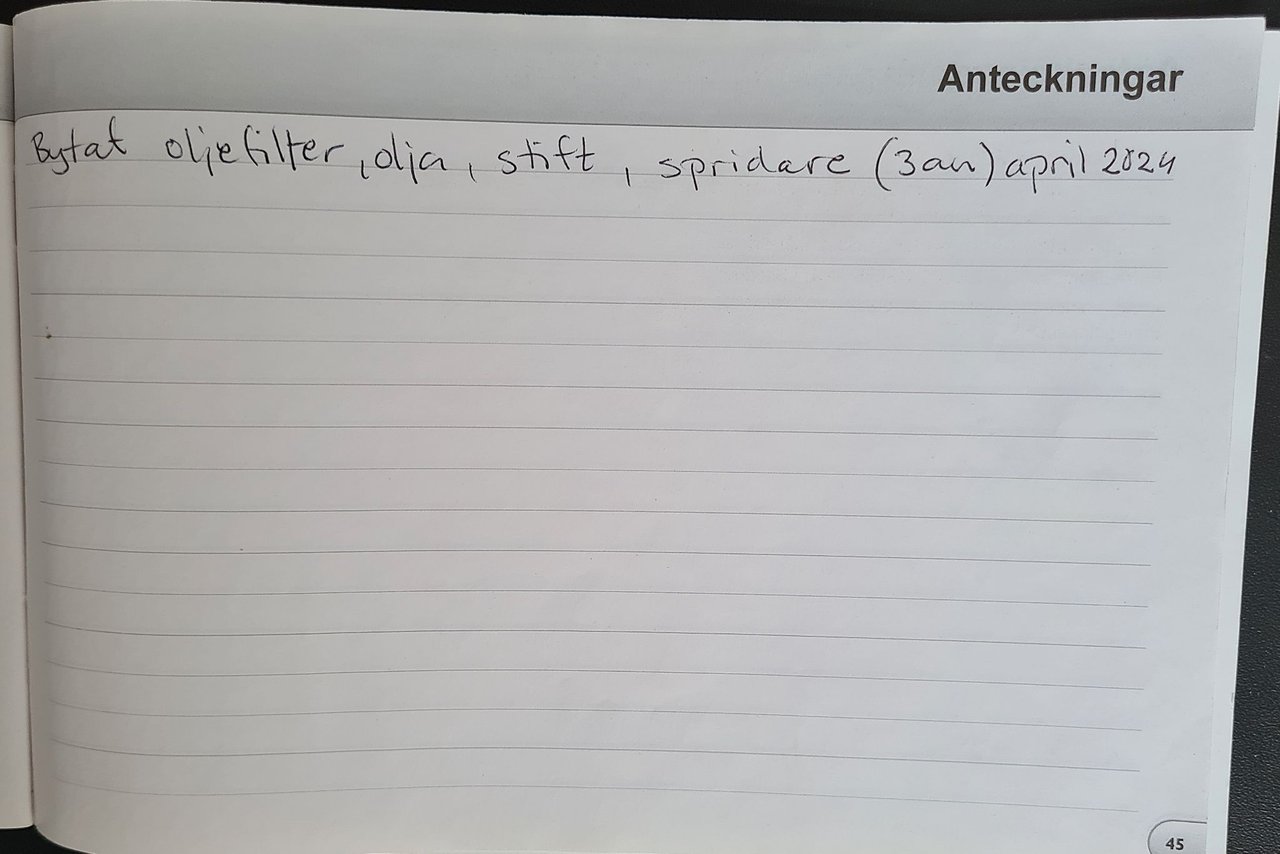 Anteckningar
Bytat oljefilter, olja, stift, spridare (3an) april 2024
45